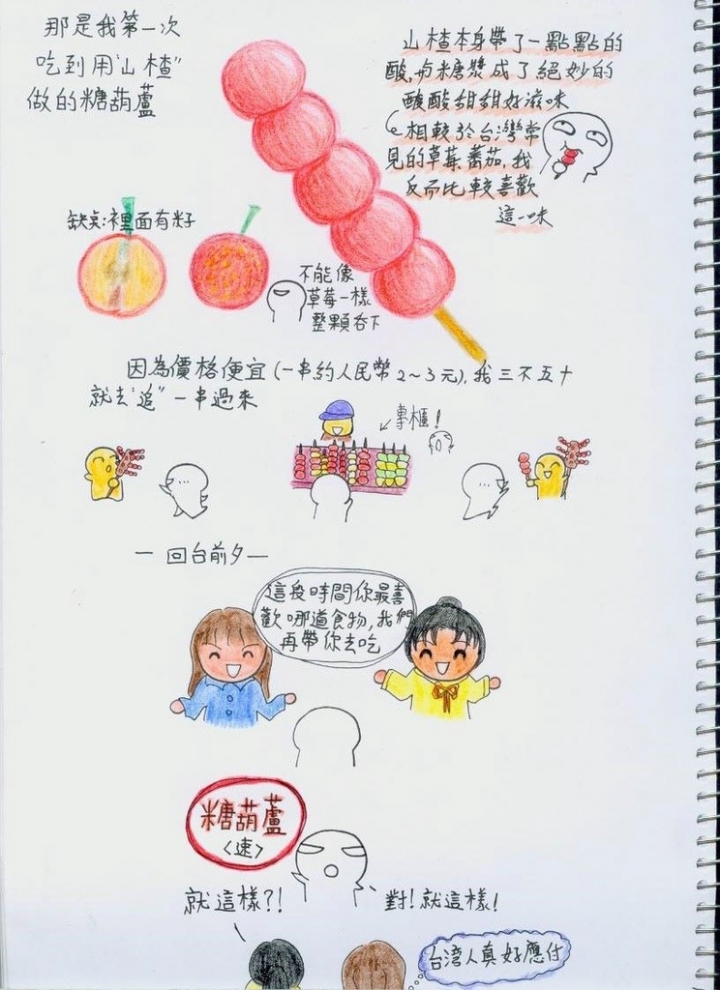 那是我第一次
吃到用"山楂"
做的糖葫蘆
山楂本身帶了一點點的
酸,與糖漿成了絕妙的
酸酸甜甜好滋味
相較於台灣常
見的草莓蕃茄,我
反而比較喜歡
這一味
缺點:裡面有籽
不能像
草莓一樣
整顆吞下
因為價格便宜(一串約人民幣2~3元),我三不五十
就去"追"一串過來
專櫃!
— 回台前夕 —
這段時間你最喜
歡哪道食物,我們
再帶你去吃
糖葫蘆
<速>
就這樣?!
對!就這樣!
台灣人真好應付